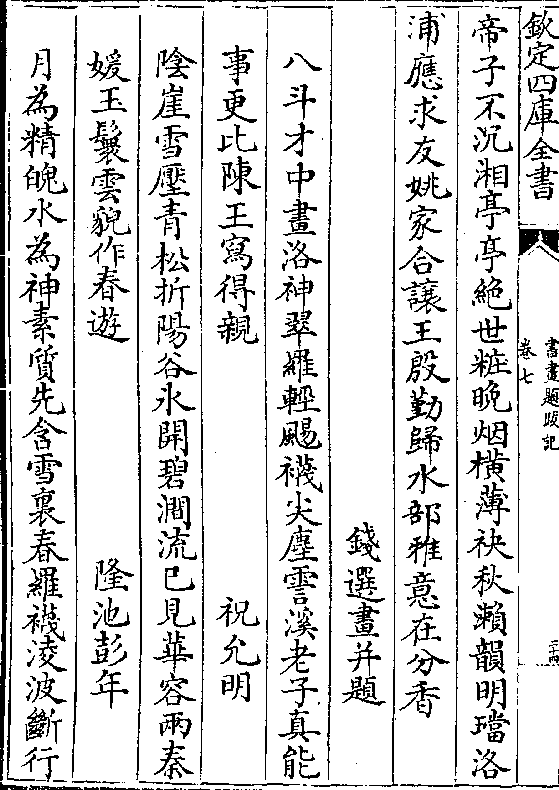 欽定四庫全書
書畫題跋記
卷七
帝子不沉湘亭亭絶世粧晚烟横薄袂秋瀨韻明璫洛
浦應求友姚家合讓王殷勤歸水部雅意在分香
錢選畫并題
八斗才中畫洛神翠羅輕颺襪尖塵霅溪老子真能
事更比陳王寫得親
祝允明
陰崖雪壓青松折陽谷氷開碧澗流已見華容兩秦
媛玉鬟雲貌作春遊
隆池彭年
月為精魄水為神素質先含雪裏春羅襪淩波斷行